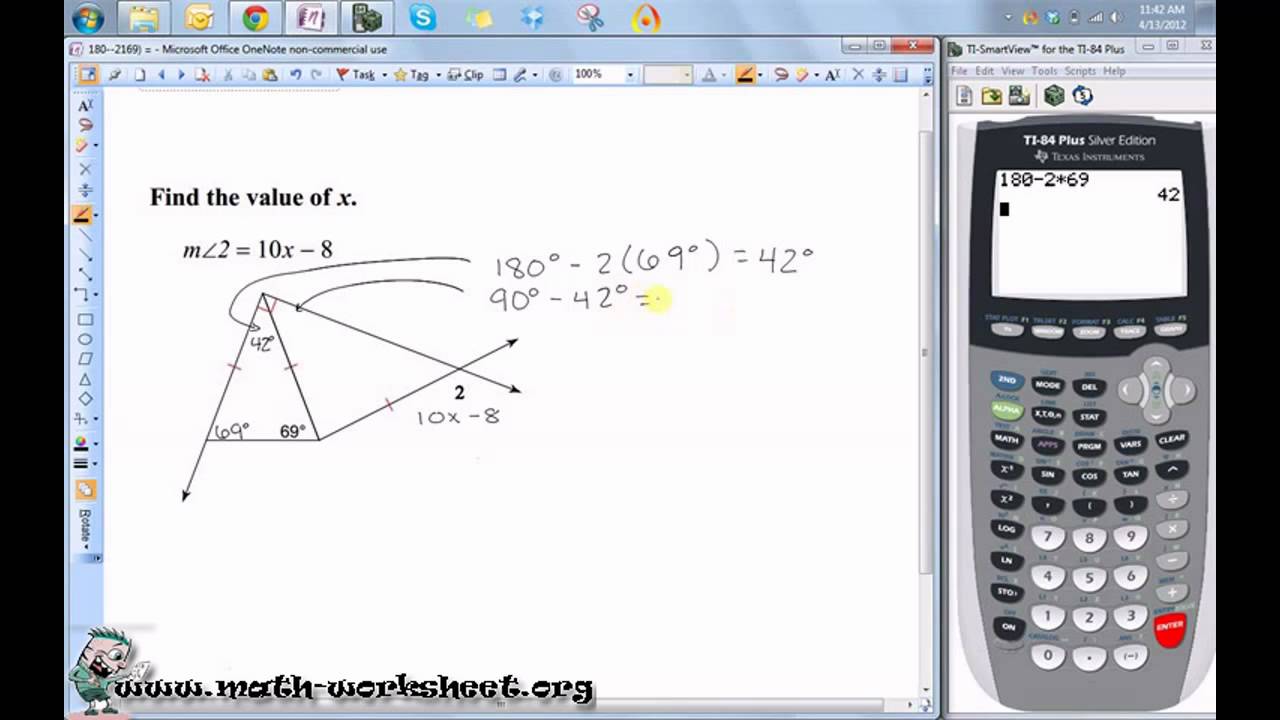 11:42 AM
4/13/2012
180--2169) = - Microsoft Office OneNote non-commercial use
TI-SmartView™ for the TI-84 Plus
Task
Tag
Clip
100%
File Edit View Tools Scripts Help
Find the value of x.
m∠2 = 10x – 8
180° - 2(69°) = 42°
90° - 42° =
42°
2
10x - 8
69°
69°
Rotate
www.math-worksheet.org
TI-84 Plus Silver Edition
TEXAS INSTRUMENTS
180-2*69
42
STAT PLOT F1 TBLSET F2 FORMAT F3 CALC F4 TABLE F5
Y= WINDOW ZOOM TRACE GRAPH
2ND MODE DEL
ALPHA X,T,θ,n STAT
MATH APPS PRGM VARS CLEAR
x⁻¹ SIN COS TAN ^
x² , ( ) ÷
LOG 7 8 9 ×
LN 4 5 6 −
STO▸ 1 2 3 +
ON 0 . (−) ENTER